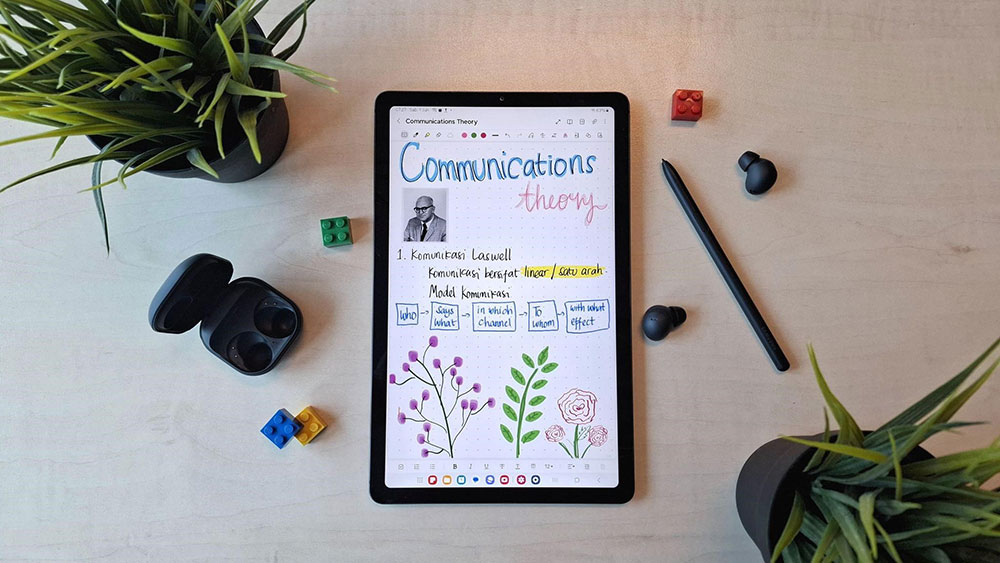 Communications Theory
Communications
theory
1. Komunikasi Laswell
Komunikasi bersifat linear / satu arah
Model Komunikasi
who → says what → in which channel → To whom → with what effect
B I U T